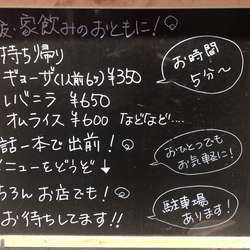 飯・家飲みのおともに!
持ち帰り
ギョーザ(1人前6ヶ)¥350
レバニラ ¥650
オムライス ¥600 などなど....
話一本で出前!
メニューをどうぞ↓
ちろんお店でも!
お待ちしてます!!
お時間
5分〜
おひとつでも
お気軽に!
駐車場
あります!